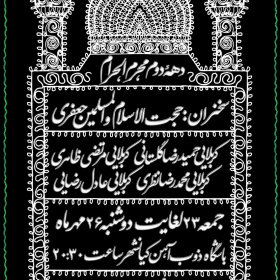 دهه دوم محرم الحرام
سخنران: حجت الاسلام والمسلمین جعفری
کربلایی حمیدرضا گلستانی کربلایی مرتضی طاهری
کربلایی محمدرضا نظری کربلایی عادل رضایی
جمعه ۲۳ لغایت دوشنبه ۲۶ مهرماه
باشگاه ذوب آهن کیانشهر ساعت ۲۰:۳۰